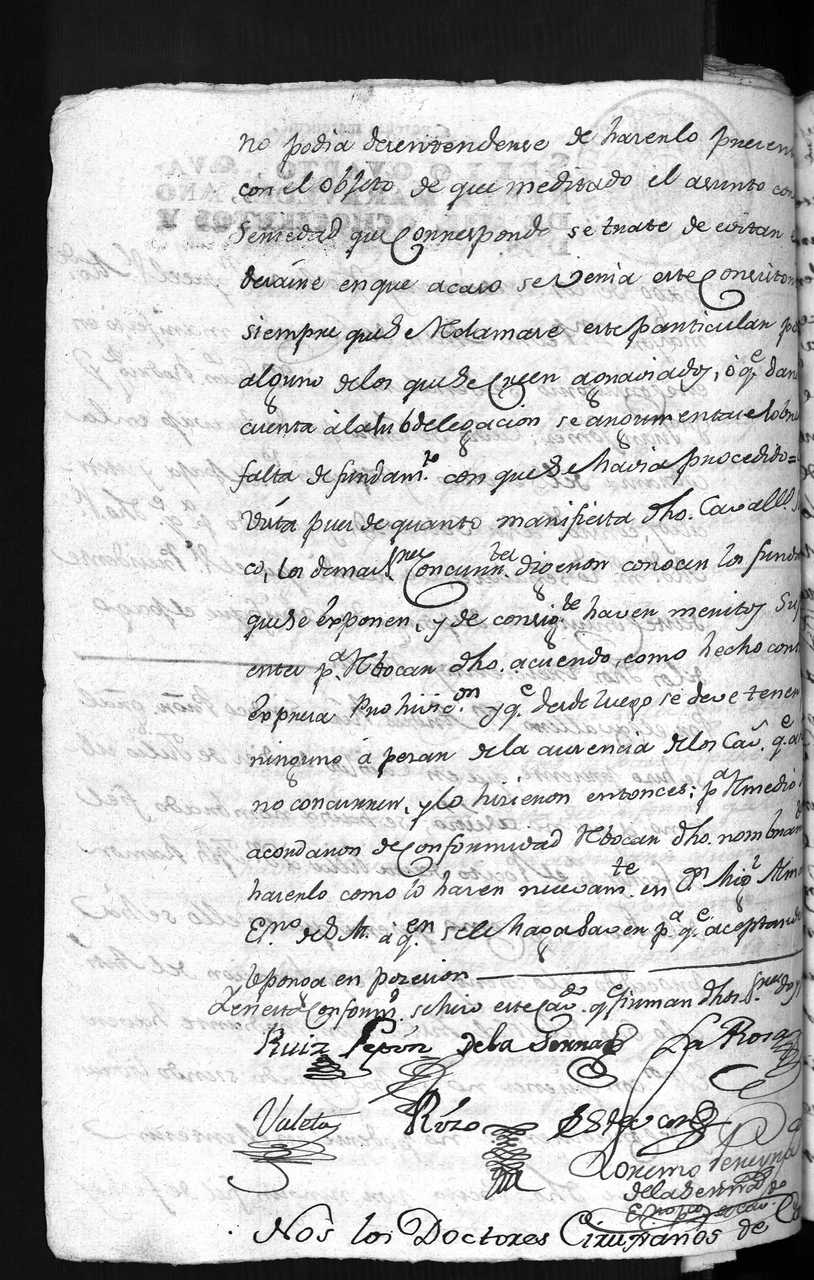 no podia desentenderse de hacerlo presen
con el objeto de que meditado el asunto con
seriedad que Corresponde se trate de evitar e
desaire en que acaso se veria este Consisto
siempre que se Reclamase este particular p
alguno de los que se Creen agraviados, ó q.e dan
cuenta à la subdelegacion se argumentase sobre
falta de fundam.to con que se havia procedido=
Vista pues de quanto manifiesta dho. Cavall.o
co, los demas S.res Concurr.tes digeron conocan los funda
que se exponen, y de consig.te hacen meritos suf
entes p.a Rebocar dho. acuerdo, como hecho cont
expresa Prohivic.on y q.e desde luego se deve tener
ninguno á pesar de la ausencia de los Cav. q.e a
no concurren, y lo hisieron entonces: p.a Remedio
acordaron de Conformidad Rebocar dho. nombram
hacerlo como lo hacen nuevam.te en D.n Mig.l Alm
E.no de S.M. à q.en se le haga saver p.a q.e aceptando
se ponga en posesion
Y en esta Conform.d se hiso este Cav.do q.e firman dhos. S.res doy
Ruiz Pepón de la Serna La Rosa
Valeta Rózo
Lorenzo Pereyra
de la Serna
Nos los Doctores Cirujanos de